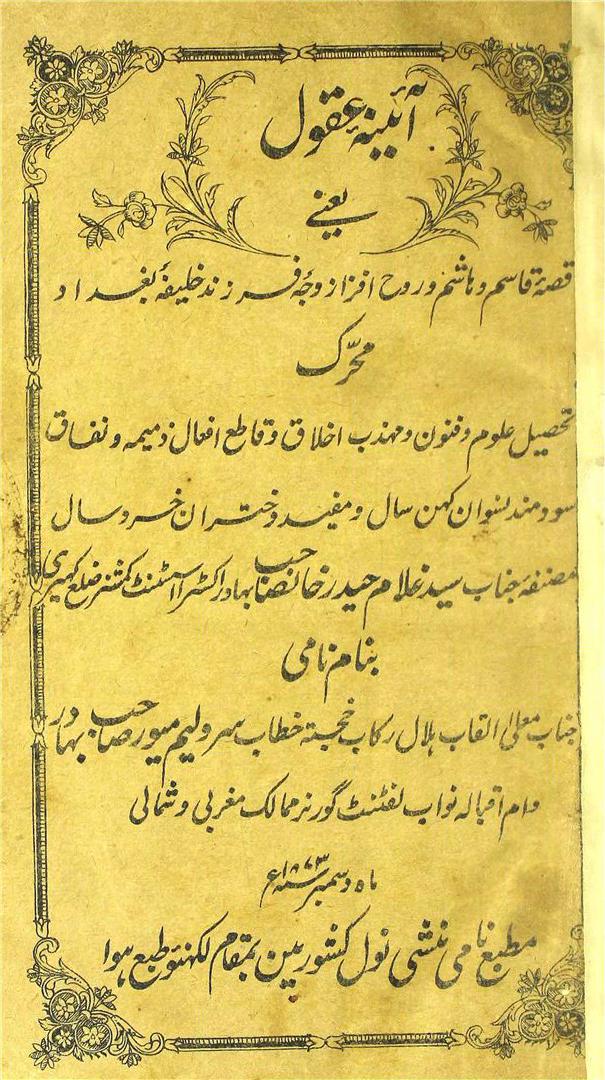 آئینۂ عقول
یعنے
قصۂ قاسم و ہاشم و روح افزا زوجۂ فرزند خلیفۂ بغداد
محرّک
تحصیل علوم و فنون و مہذب اخلاق و قاطع افعال ذمیمہ و نفاق
سودمند نسوان کہن سال و مفید دختران خرد سال
مصنفۂ جناب سید غلام حیدر خانصاحب بہادر اکسٹرا اسسٹنٹ کمشنر ضلع کھیری
بنام نامی
جناب معلیٰ القاب ہلال رکاب خجستہ خطاب سر ولیم میور صاحب بہادر
دام اقبالہ نواب لفٹنٹ گورنر ممالک مغربی و شمالی
ماہ دسمبر سنہ ۱۸۷۳ع
مطبع نامی منشی نول کشور مین بمقام لکھنؤ طبع ہوا